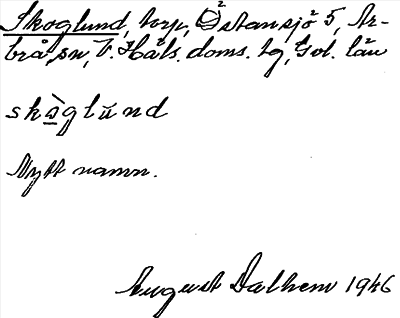 Skoglund, torp, Östansjö 5, Ar-
brå sn, V. Häls. doms. tg, Gvl. län
skoglund
Nytt namn.
August Dalhem 1946